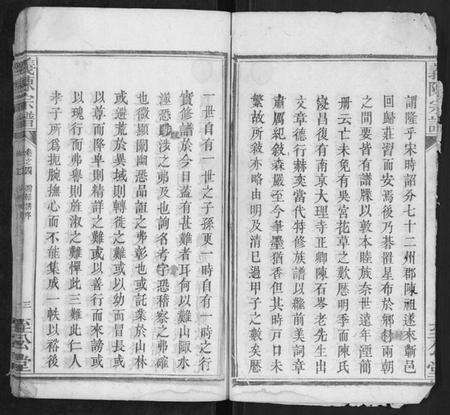 義陳宗譜
謂隆乎宋時詔分七十二州郡陳祖遂來蘄邑
回歸莊習而安焉後乃碁置星布於鄉村兩朝
之間要皆有譜牒以敦本睦族奈世遠年湮簡
册云亡未免有吳宮花草之歎歷明季而陳氏
寖昌復有南京大理寺正卿陳石麥老先生出
文章德行赫奕當代特修族譜以繼前美詞章
肅厲紀敘森嚴至今華墨猶香但其時戸口未
繁故所敘亦略由明及清已過甲子之數矣歷
一世自有一世之子孫更一時自有一時之行
實修譜於今日蓋有甚難者耳何以難山陬水
澨恐跋涉之弗及也詢名考字恐稽察之弗確
也微顯闡幽恐品詣之弗彰也或託業於山林
或遯荒於異域則轉徙之難或以幼而冒長或
以尊而降卑則精詳之難或以善行而來謗或
以瑰行而弗譽則旌淑之難憚此三難此仁人
孝子所為扼腕撫心而不能集成一帙以稽後
義陳宗譜
卷之四
三
至公堂